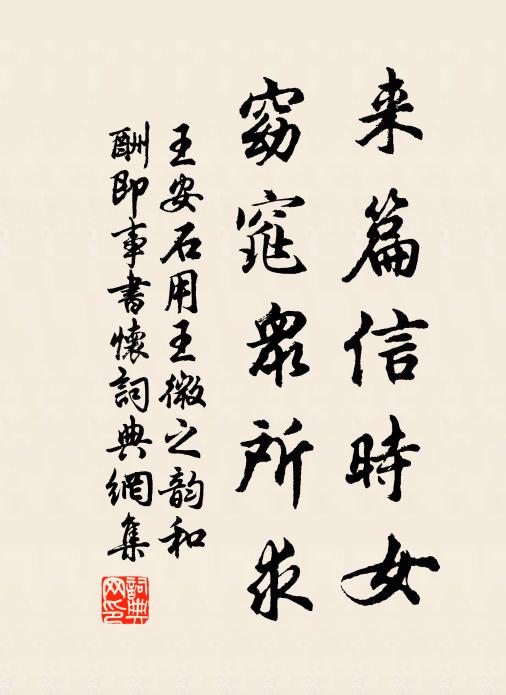 来篇信時女
窈窕衆所求
王安石用王微之韵和
酬即事書懷詞典網集
詞典網印